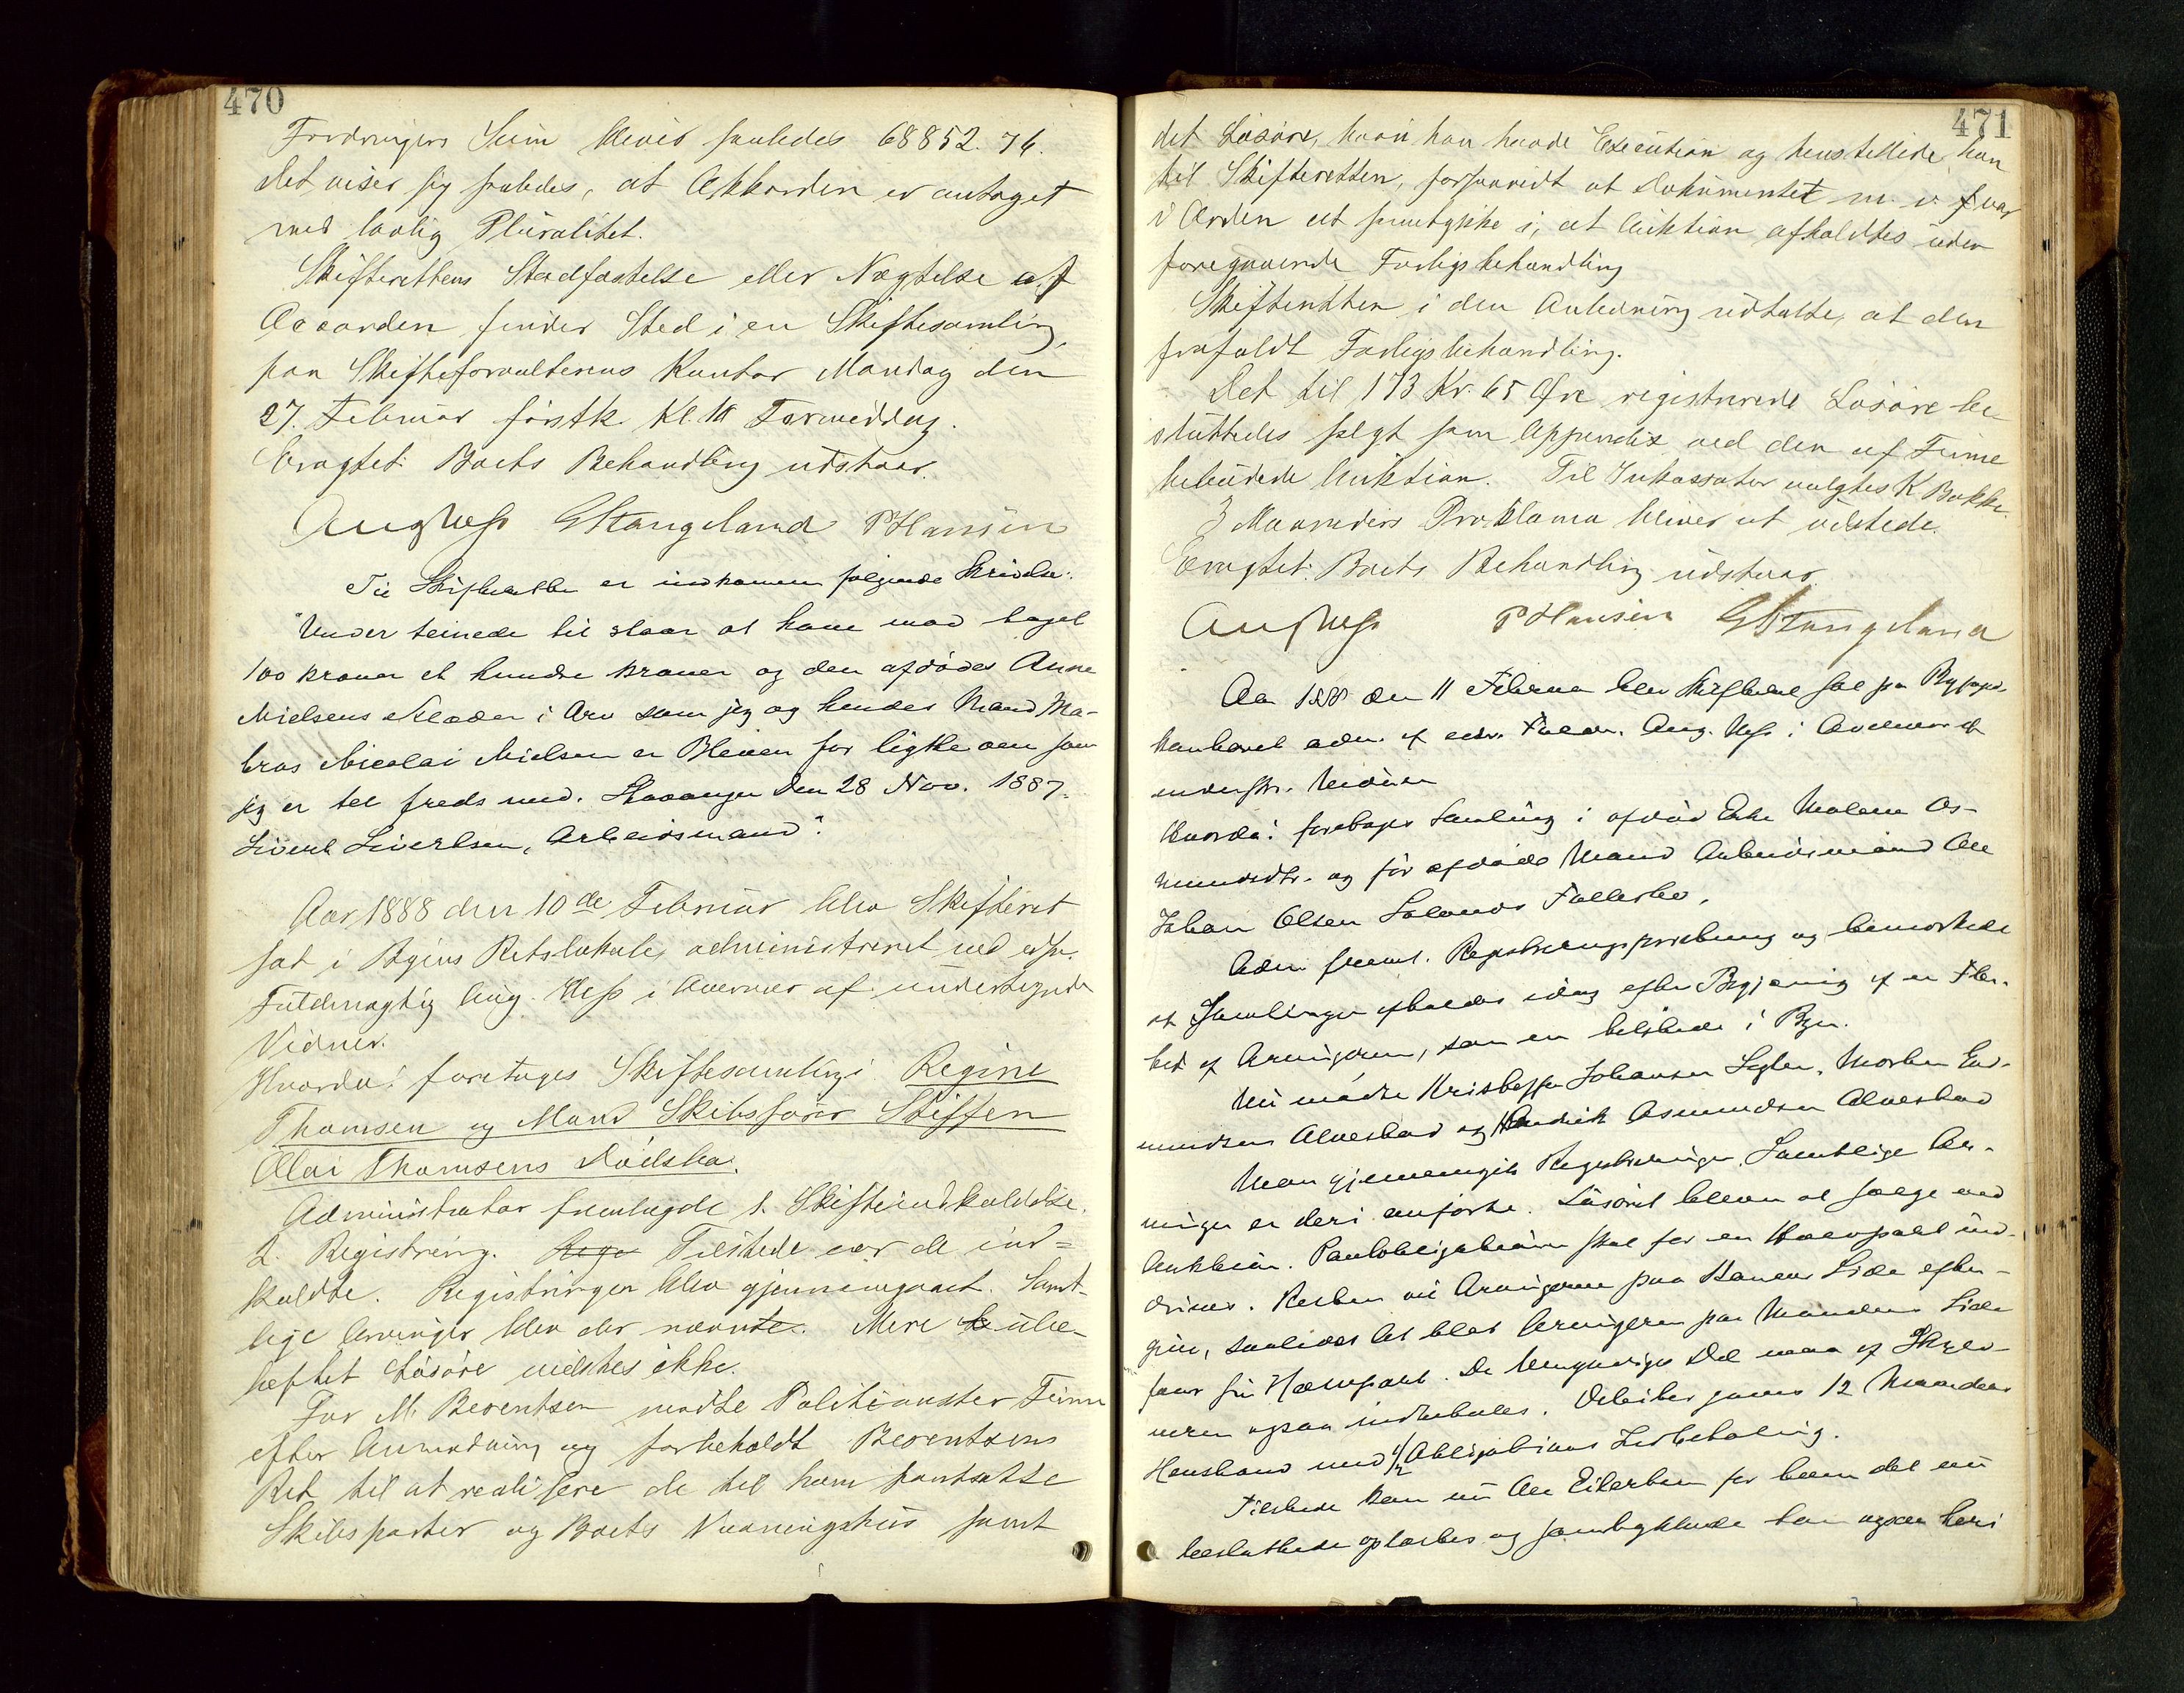 470
Fordringers Sum bliver saaledes 68852.76.
Det viser sig saaledes, at Akkorden er antaget
med lovlig Pluralitet.
Skifterettens Stadfæstelse eller Nægtelse af
Accorden finder Sted i en Skiftesamling,
paa Skifteforvalterens Kontor Mandag den
27. Februar førstk. Kl. 10 Formiddag.
Eragtet: Boets Behandling udstaar.
Aug Hess GStangeland PHansen
Til Skifteretten er indkommen følgende Skrivelse:
"Under teinede til staar at have mod taget
100 kroner et hundre kroner og den afdødes Anne
Nielsens Klæder i Arv som jeg og hendes Mand Ma-
tros Nicolai Nielsen er Bleven for ligte om som
jeg er tel freds med. Stavanger Den 28 Nov. 1887.
Sivert Sivertsen, Arbeidsmand".
Aar 1888 den 10de Februar blev Skifteret
sat i Byens Retslokale, administreret ved edsv.
Fuldmægtig Aug. Hess i Nærvær af undertegnede
Vidner.
Hvorda: foretoges Skiftesamling i Regine
Thomsen og Mand Skibsfører Steffen
Olai Thomsens Dødsbo.
Administrator fremlagde 1. Skifteindkaldelse.
2. Registrering. Rege Tilstede var de ind=
kaldte. Registringen blev gjennemgaaet. Samt-
lige Arvinger blev der nævnte. Mere be ube-
hæftet Løsøre vidstes ikke.
For M. Berentsen mødte Politimester Feinn
efter Anmodning og forbeholdt Berentsens
Ret til at realisere de til ham pantsatte
Skibsparter og Boets Vaaningshus samt
471
det Løsøre, hvori han havde Execution og henstillede han
til Skifteretten, forsaavidt at Dokumentet m. v. var
i Orden at samtykke i, at Auktion afholdtes uden
foregaaende Forligsbehandling
Skifteretten i den Anledning udtalte, at den
frafaldt Forligsbehandling.
Det til 173 Kr. 65 Øre registrerede Løsøre be-
sluttedes solgt som Appendix ved den af Feinn
bebudede Auktion. Til Inkassator valgtes K Bakke.
3 Maaneders Proklama bliver at udstede.
Eragtet: Boets Behandling udstaar.
Aug Hess PHansen GStangeland
Aar 1888 den 11 Februar blev Skifteret sat paa Byfoged-
kontoret adm. af edsv. Fuldm. Aug. Hess i Overvær af
underskr. Vidner
Hvorda: foretoges Samling i afdød Enke Malene As-
mundsdtr. og før afdøde Mand Arbeidsmand Ole
Johan Olsen Salends Fællesbo.
Adm. freml. Registreringsforretning og bemærkede
at Samlingen afholdes idag efter Begjæring af en Fler-
hed af Arvingerne, som er tilstede i Byen.
Nu mødte Kristoffer Johansen Sigten, Morten Eud-
mundsen Alvestad og Hendrik Asmundsen Alvestad
Man gjennemgik Registreringen. Samtlige Ar-
vinger er deri anførte. Løsøret bliver at sælge ved
Auktion. Pantobligationen skal for en Halvpart ind-
drives. Resten vil Arvingerne paa Konens Side efter-
give, saaledes at blot Arvingerne paa Mandens Side
faar sin Halvpart. De Umyndiges Del maa af Skyld-
neren ogsaa indbetales. Debitor gives 12 Maaneders
Henstand med 1/2 Obligations Indbetaling.
Tilstede kom nu Ole Eilertsen for hvem det nu
besluttede oplæstes og samtykkede han ogsaa heri